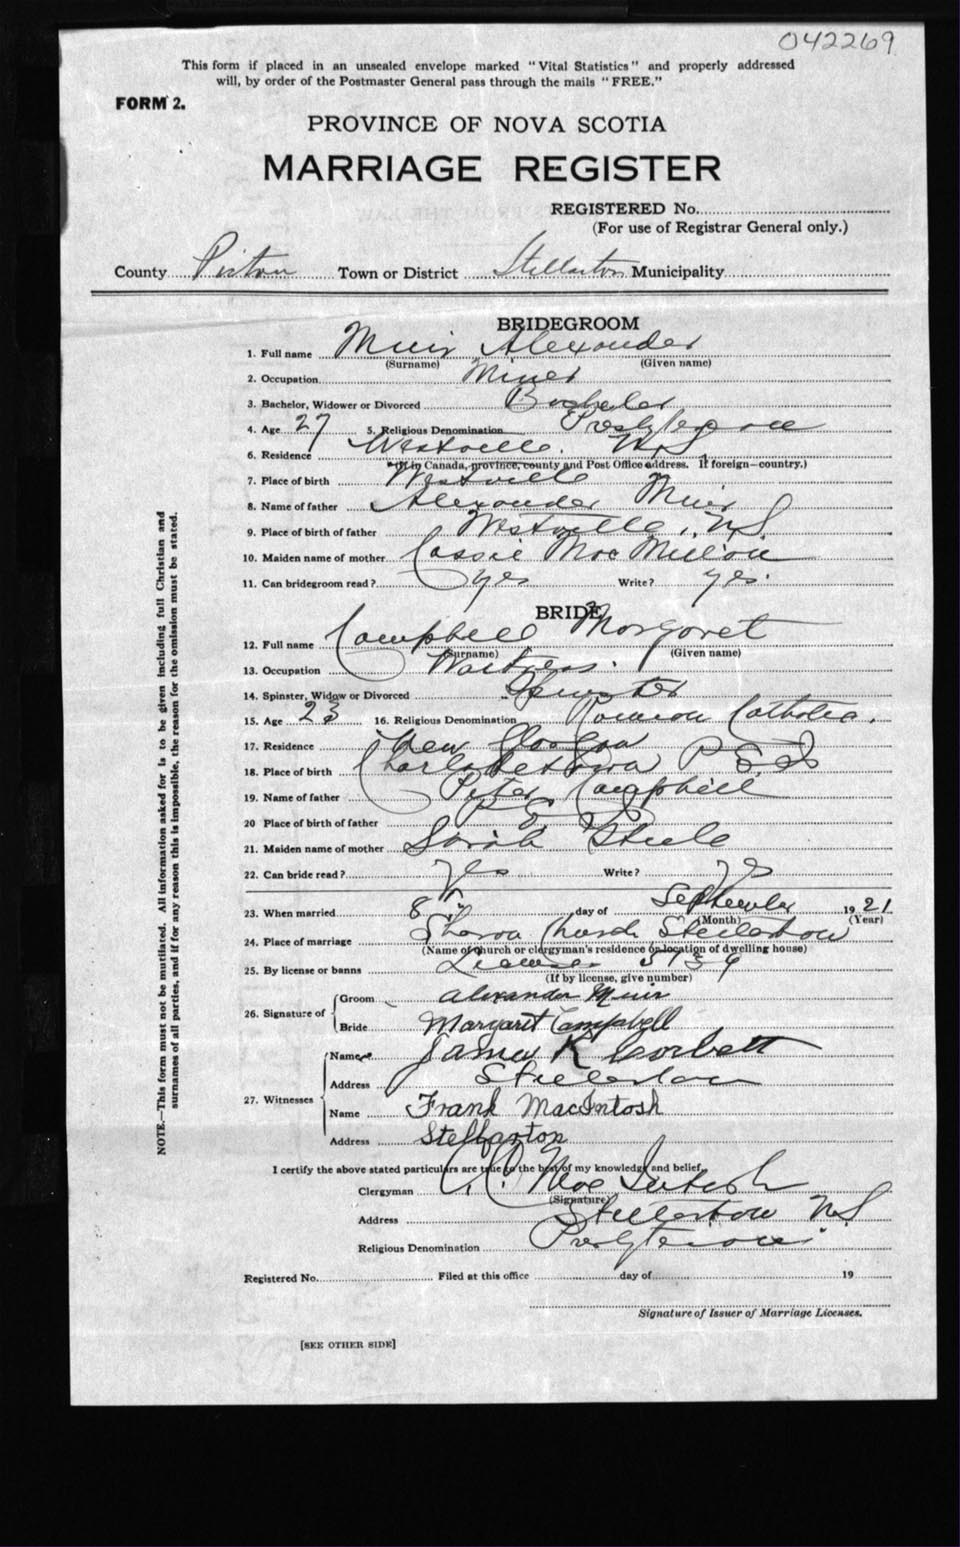 042269
This form if placed in an unsealed envelope marked "Vital Statistics" and properly addressed
will, by order of the Postmaster General pass through the mails "FREE."
FORM 2.
PROVINCE OF NOVA SCOTIA
MARRIAGE REGISTER
REGISTERED No.
(For use of Registrar General only.)
County Pictou Town or District Stellarton Municipality
BRIDEGROOM
1. Full name Muir Alexander
(Surname) (Given name)
2. Occupation Miner
3. Bachelor, Widower or Divorced Bachelor
4. Age 27 5. Religious Denomination Presbyterian
6. Residence Westville. N.S
(If in Canada, province, county and Post Office address. If foreign—country.)
7. Place of birth Westville
8. Name of father Alexander Muir
9. Place of birth of father Westville, N.S.
10. Maiden name of mother Cassie MacMillan
11. Can bridegroom read? yes Write? yes.
BRIDE
12. Full name Campbell Margaret
(Surname) (Given name)
13. Occupation Waitress.
14. Spinster, Widow or Divorced Spinster
15. Age 23 16. Religious Denomination Roman Catholic.
17. Residence New Glasgow
18. Place of birth Charlottetown P E I
19. Name of father Peter Campbell
20 Place of birth of father
21. Maiden name of mother Sarah Steele
22. Can bride read? Yes Write? yes
23. When married 8th day of September 1921
(Month) (Year)
24. Place of marriage Sharon Church Stellarton
(Name of church or clergyman's residence or location of dwelling house)
25. By license or banns License
(If by license, give number)
26. Signature of Groom Alexander Muir
Bride Margaret Campbell
27. Witnesses Name James K Corbett
Address Stellarton
Name Frank MacIntosh
Address Stellarton
I certify the above stated particulars are true to the best of my knowledge and belief,
Clergyman C.C. MacIntosh
(Signature)
Address Stellarton N.S
Religious Denomination Presbyterian.
Registered No. Filed at this office day of 19
Signature of Issuer of Marriage Licenses.
[SEE OTHER SIDE]
NOTE.—This form must not be mutilated. All information asked for is to be given including full Christian and
surnames of all parties, and if for any reason this is impossible, the reason for the omission must be stated.